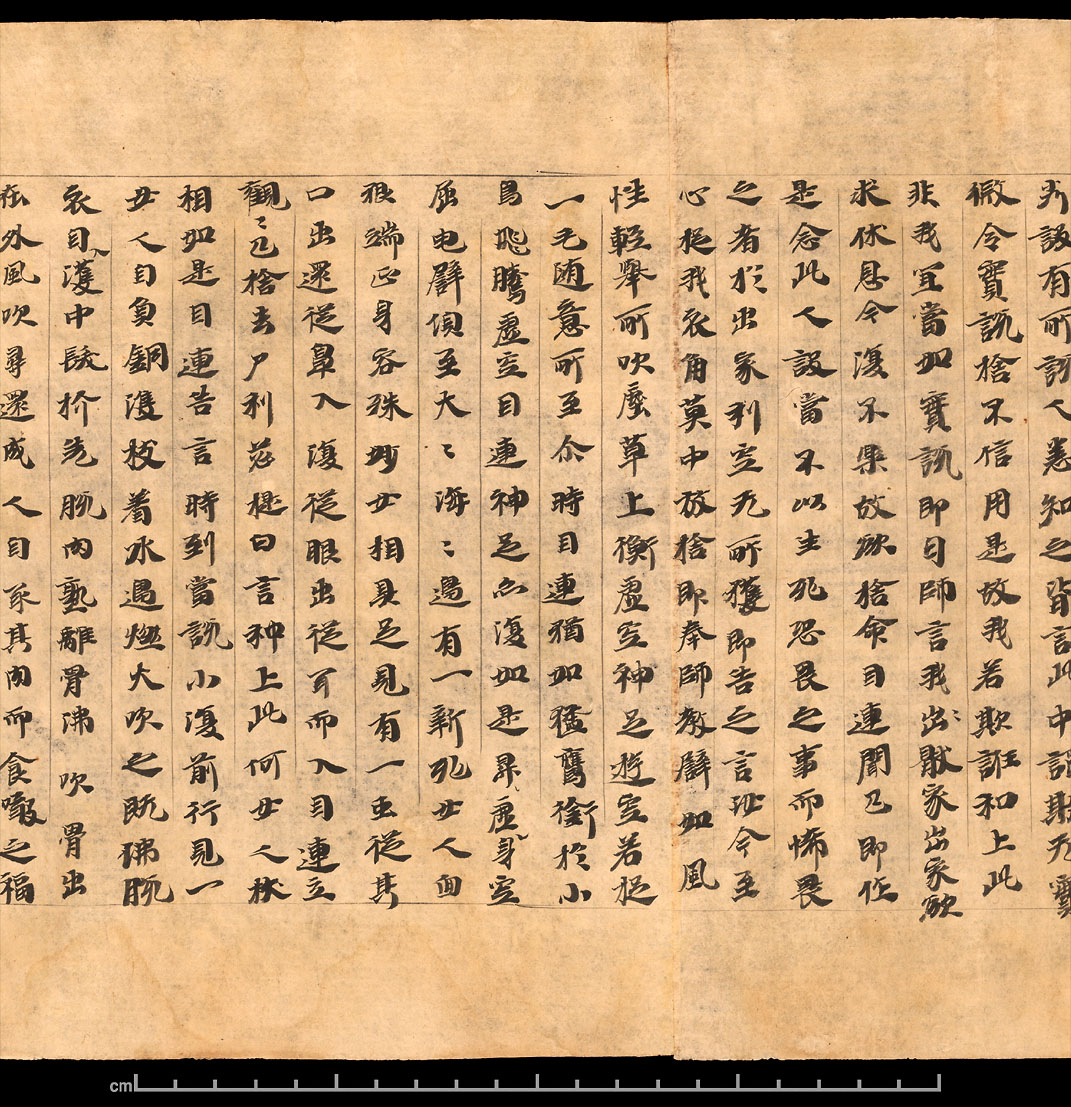 設有所說人悉知之皆言此中語斯无實
微令實說捨不信用是故我若欺誑和上此
非我宜當如實說即白師言我出〻猒家出家欲
求休息今復不樂故欲捨命目連聞已即作
是念此人設當不以生死恐畏之事而怖畏
之者於出家利空无所獲即告之言汝今至
心捉我衣角莫中放捨即奉師教譬如風
性輕舉所吹塵草上衝虛空神足遊空若捉
一毛随意所至尒時目連猶如猛鷹銜於小
鳥飛騰虛空目連神足亦復如是昇虛身空
屈申臂頃至大〻海〻過有一新死女人面
貌端正身容殊妙女相具足見有一虫從其
口出還從鼻入復從眼出從耳而入目連立
觀〻已捨去尸利苾提白言和上此何女人狀
相如是目連告言時到當說小復前行見一
女人自負銅鑊枝着水過燃火吹之既沸脫
衣自入鑊中髮抓先脫肉熟離骨沸吹骨出
在外風吹尋還成人自取其肉而食噉之福
cm